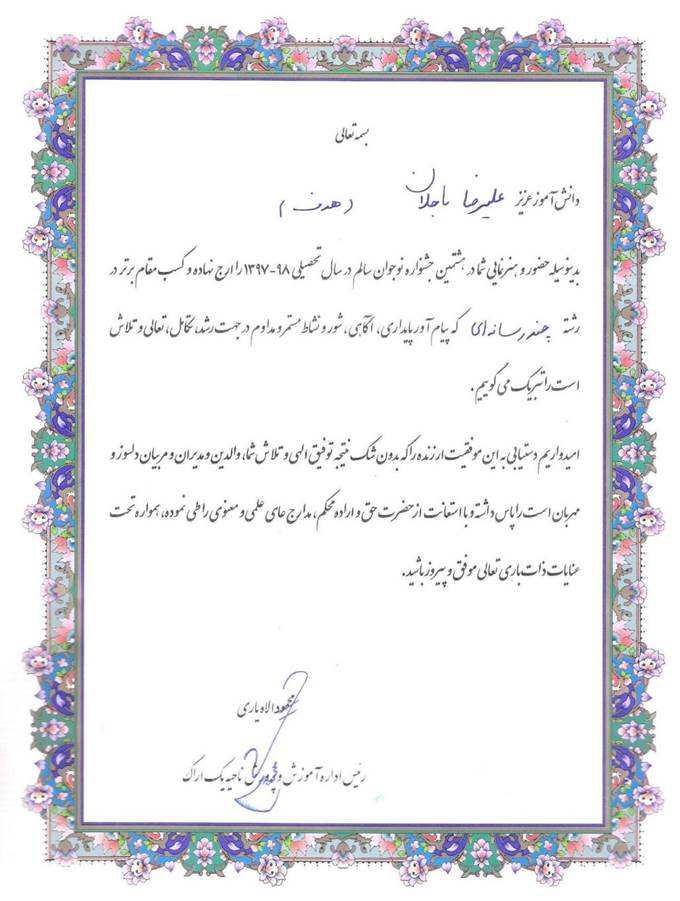 بسمه تعالی
دانش آموز عزیز علیرضا باجلان (هدف)
بدینوسیله حضور و هنرنمایی شما در هشتمین جشنواره نوجوان سالم در سال تحصیلی ۹۸-۱۳۹۷ را ارج نهاده و کسب مقام برتر در
رشته چند رسانه ای که پیام آور پایداری، آگاهی، شور و نشاط مستمر و مداوم در جهت رشد، تکامل، تعالی و تلاش
است را تبریک می گوییم.
امیدواریم دستیابی به این موفقیت ارزنده را که بدون شک نتیجه توفیق الهی و تلاش شما، والدین و مدیران و مربیان دلسوز و
مهربان است را پاس داشته و با استعانت از حضرت حق و اراده محکم، مدارج عای علمی و معنوی را طی نموده، همواره تحت
عنایات ذات باری تعالی موفق و پیروز باشید.
محمود الاه یاری
رئیس اداره آموزش و پرورش ناحیه یک اراک